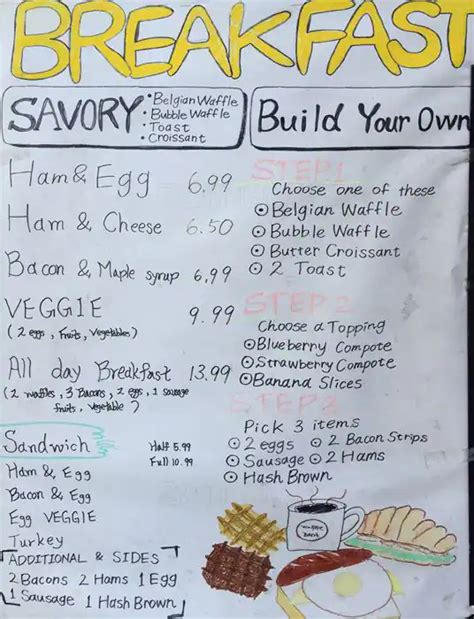 BREAKFAST
SAVORY
• Belgian Waffle
• Bubble Waffle
• Toast
• Croissant
Ham & Egg 6.99
Ham & Cheese 6.50
Bacon & Maple syrup 6.99
VEGGIE 9.99
(2 eggs, fruits, vegetables)
All day Breakfast 13.99
(2 waffles, 3 Bacons, 2 eggs, 1 sausage
fruits, vegetable)
Sandwich Half 5.99
Full 10.99
Ham & Egg
Bacon & Egg
Egg VEGGIE
Turkey
ADDITIONAL & SIDES
2 Bacons 2 Hams 1 Egg
1 Sausage 1 Hash Brown
Build Your Own
STEP 1
Choose one of these
Belgian Waffle
Bubble Waffle
Butter Croissant
2 Toast
STEP 2
Choose a Topping
Blueberry Compote
Strawberry Compote
Banana Slices
STEP 3
Pick 3 items
2 eggs 2 Bacon Strips
Sausage 2 Hams
Hash Brown